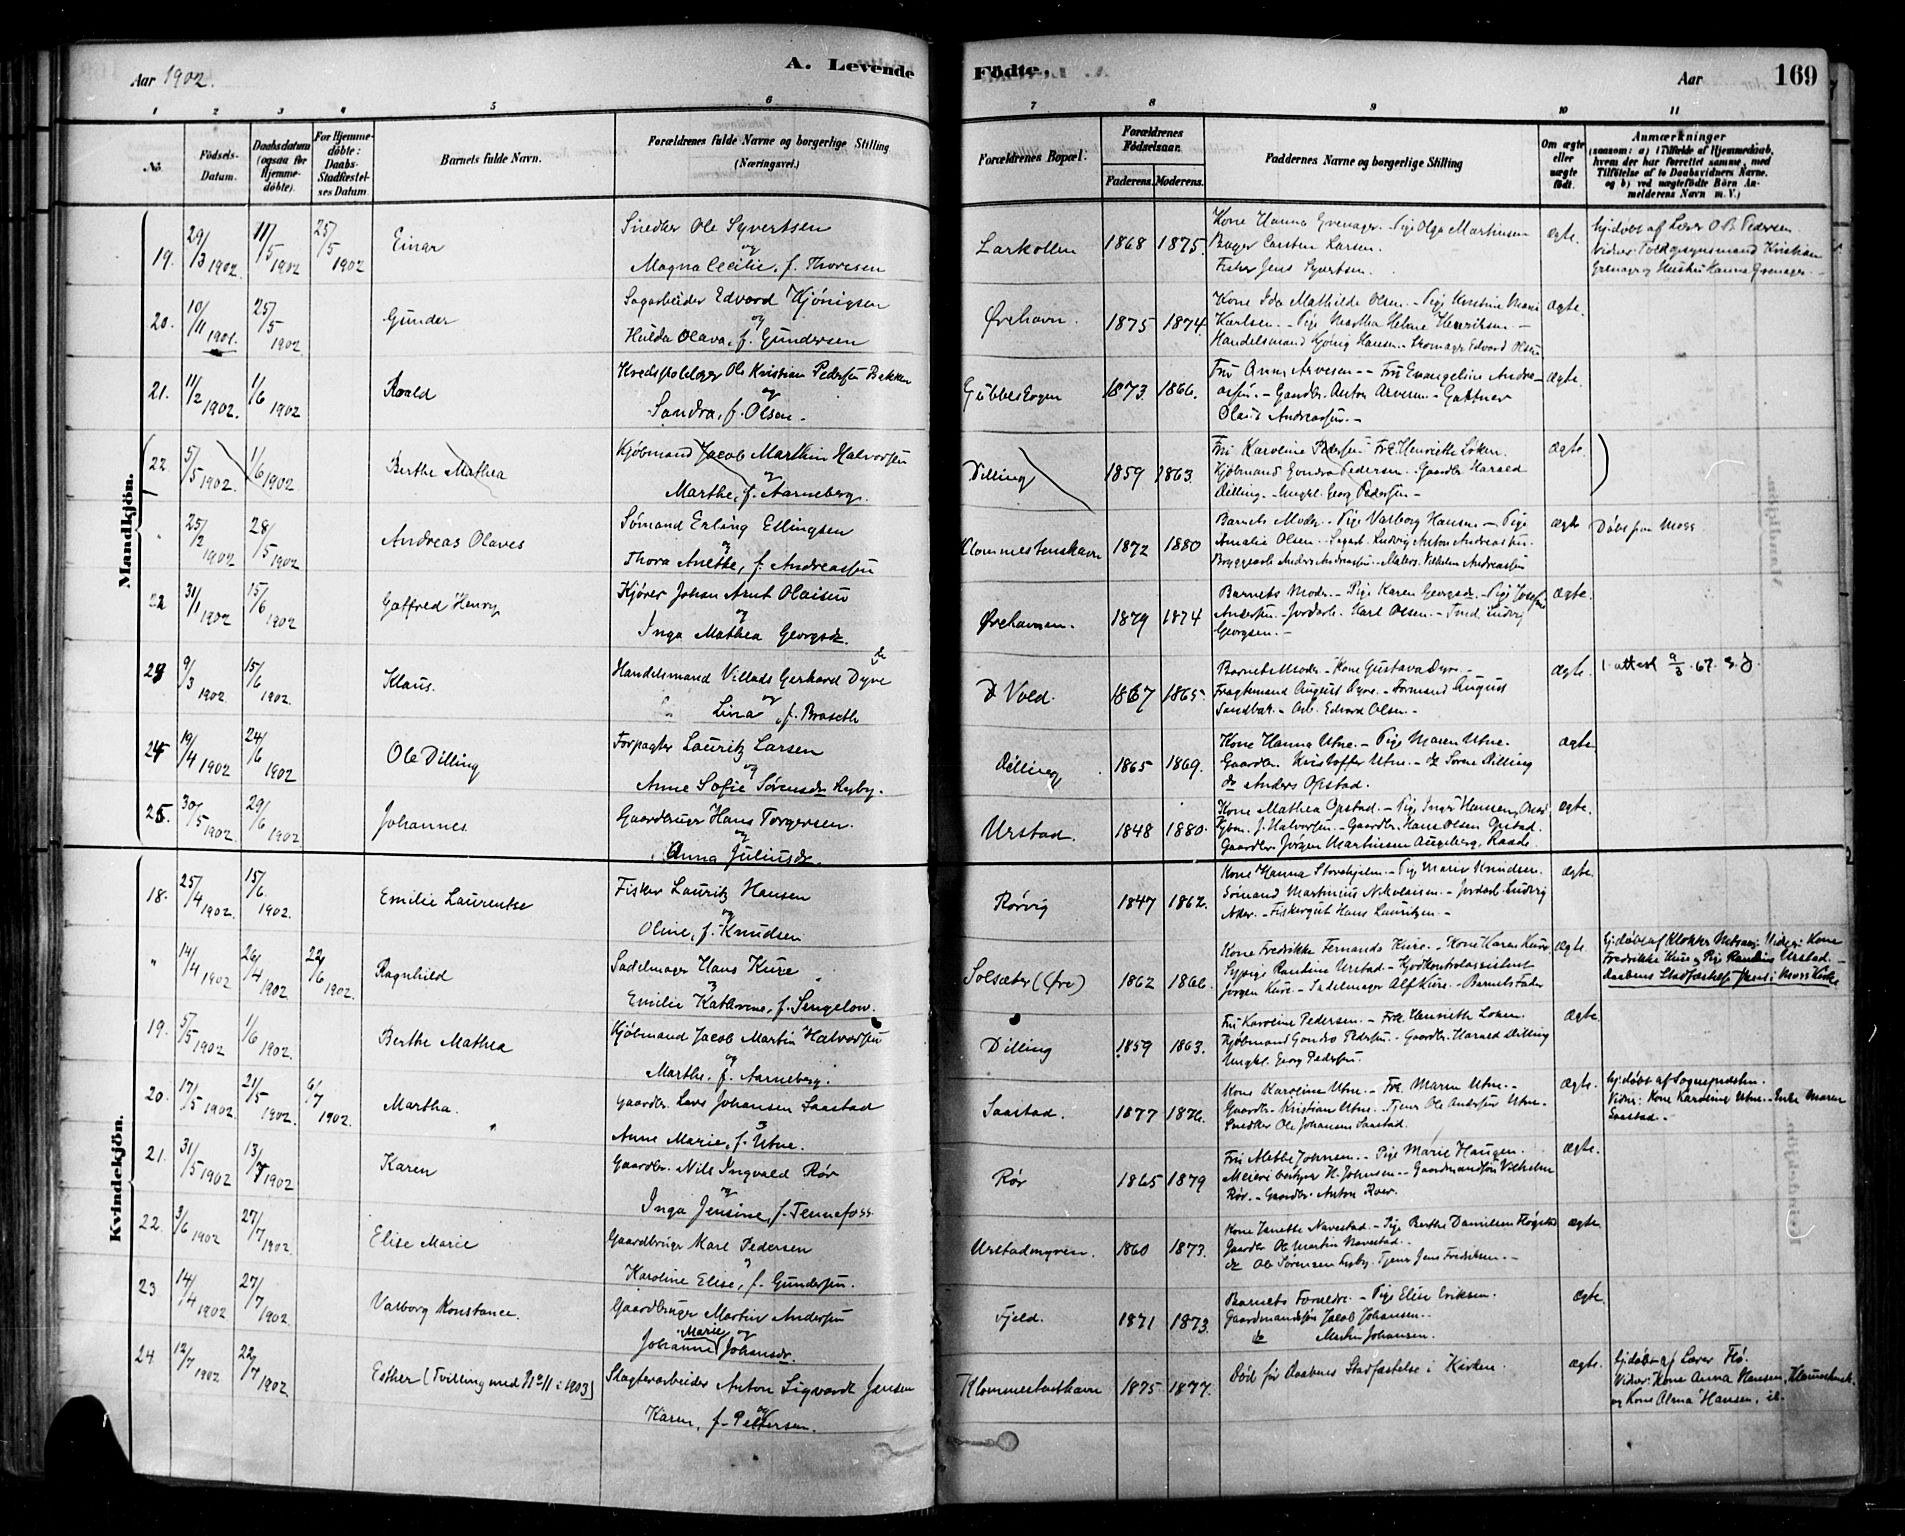 Aar 1902.
A. Levende
Födte,
Aar
169
1 2 3 4 5 6 7 8 9 10 11
No.
Födsels-Datum.
Daabsdatum (ogsaa for Hjemmedöbte).
For Hjemmedöbte: Daabs-Stadfæstelses Datum.
Barnets fulde Navn.
Forældrenes fulde Navne og borgerlige Stilling (Næringsvei.)
Forældrenes Bopæl.
Forældrenes Födselsaar.
Faderens. Moderens.
Faddernes Navne og borgerlige Stilling
Om ægte eller uægte födt.
Anmærkninger
(saasom: a) i Tilfælde af Hjemmedaab, hvem der har forrettet samme, med Tilföielse af to Daabsvidners Navne. og b) ved uægtefödte Börn Anmelderens Navn m. V.)
Mandkjön.
19. 29/3 1902 11/5 1902 25/5 1902 Einar Snedker Ole Syvertsen
og
Magna Cecilie, f. Thoresen
Larkollen 1868 1875. Kone Hanna Grenager. Pige Olga Martinsen
Bager Carsten Larsen.
Fisker Jens Syvertsen.
ægte. hj.døbt af Lærer O B Pedersen
20. 10/11 1901. 25/5 1902 Gunder Sagarbeider Edvard Kjönigsen
og
Hulda Olava, f. Gundersen
Ørehavn. 1875 1874. Kone Ida Mathilde Olsen. - Pige Kristine Marie
Karlsen. - Pige Martha Helene Henriksen -
Handelsmand Kjönig Hansen. - Skomager Edvard Olsen
ægte.
21. 11/2 1902. 1/6 1902 Roald Ole Kristian Pedersen Bakken
og
Sandra, f. Olsen.
Gubbeskogen 1873. 1866. Fru Anna Arvesen. - Fru Evangeline Andreassen. - Gaardbr. Anton Arvesen. - Gartner
Olaus Andreassen. -
ægte.
22. 5/5 1902. 1/6 1902 Berthe Mathea Kjøbmand Jacob Marthin Halvorsen
og
Marthe, f. Aarneberg.
Dilling 1859 1863. Fru Karoline Pedersen Frk. Henriette Løken.
Kjøbmand Gondro Pedersen. - Gaardbr. Harald
Dilling. - Ungkl. Georg Pedersen -
ægte.
25/2 1902 28/5 1902 Andreas Olaves Sømand Erling Ellingsen
og
Thora Anette, f. Andreassen
Klommestenshavn 1872 1880 Barnets Moder. - Pige Valborg Hansen - Pige
Amalie Olsen. - Sagarb. Ludvig Anton Andreassen.
Bryggearb. Anders Andreassen. - Malers. Vilhelm Andreassen
ægte Døbt paa Moss
22 31/1 1902 15/6 1902 Gotfred Henry Kjører Johan Arnt Olaisen
og
Inga Mathea Georgsdr.
Ørehavnen. 1879 1874 Barnets Moder. - Pige Karen Georgsdr. - Pige Josefine
Andersen. - Jordarb. Karl Olsen. - Ludvig
Georgsen. -
ægte.
23 9/3 1902. 15/6 1902 Klaus. Handelsmand Villads Gerhard Dyve
og
Lina, f. Braseth
Vold. 1867 1865. Barnets Moder - Kone Gustava Dyre. -
Fragtemand August Dyre. - Formand August
Sandbak. - Arb. Edvard Olsen. -
ægte.
24 19/4 1902 24/6 1902 Ole Dilling Forpagter Lauritz Larsen
og
Anne Sofie Sørensdr. Ryby.
Dilling 1865 1869. Kone Hanna Utne. - Pige Maren Utne.
Gaardbr. Kristoffer Utne. - do Søren Dilling
do Anders Opstad.
ægte
25. 30/5 1902. 29/6 1902 Johannes Gaardbruger Hans Torgersen.
og
Anna Juliusdr.
Urstad. 1848 1880. Kone Mathea Opstad. - Pige Inger Hansen
Kjbm. J. Halvorsen. - Gaardbr. Hans Olsen Opstad.
Gaardbr. Jörgen Martinsen Augeberg, Raade
ægte.
Kvindekjön.
18. 25/4 1902. 15/6 1902. Emilie Laurentse Fisker Lauritz Hansen
og
Oline, f. Knudsen
Rørvig 1847 1862. Kone Hanna - Pige Marie Knudsen.
Sømand Martinius Nikolaisen. - Jordarb. Ludvig
- Fiskergut Hans Lauritzen. -
ægte.
" 14/4 1902 26/4 1902. 22/6 1902. Ragnhild Sadelmager Hans Kure
og
Emilie Kathrine, f. Sengelow.
Solsæter (Øre) 1862 1866. Kone Fredrikke Fernanda Kure. - Kone Karen Kure
Sypige Rantine Urstad - Kjødkontrolassistent
Jørgen Kure. - Sadelmager Alf Kure. - Barnets Fader
ægte. Hj.døbt af Klokker
Fredrikke Kure og Pige Randine Urstad. -
Daabens Stadfæstelse i Moss Kirke
19. 5/5 1902 1/6 1902. Berthe Mathea Kjøbmand Jacob Martin Halvorsen
og
Marthe, f. Aarneberg.
Dilling 1859 1863. Fru Karoline Pedersen. - Frk. Henriette Løken
Kjøbmand Gondro Pedersen - Gaardbr. Harald Dilling
Ungkl. Georg Pedersen.
ægte.
20. 17/5 1902. 21/5 1902. 6/7 1902. Martha. Gaardbr. Lars Johansen Saastad
Anne Marie, f. Utne.
Saastad. 1877 1876. Kone Karoline Utne - Frk. Maren Utne. -
Gaardbr. Kristian Utne. - Tjener Ole Andersen Utne. -
Snedker Ole Johansen Saastad.
ægte. hj.døbt af Sognepresten.
Vidner: Kone Karoline Utne. - Enke Maren
Saastad. -
21. 31/5 1902 13/7 1902 Karen Gaardbr. Nils Ingvald Rør
og
Inga Jensine, f. Tennefoss.
Rør 1865 1879 Fru Mette Johnsen. - Pige Marie Haugen.
Meieribestyrer H. Johnsen. - Gaardmandssøn Vilhelm
Rør. - Gaardbr. Anton Roer.
ægte.
22. 3/6 1902 27/7 1902. Elise Marie Gaardbruger Karl Pedersen
Karoline Elise, f. Gundersen.
Urstadmyren. 1860 1873. Kone Janette Navestad - Pige Berthe Danielsen
Gaardbr. Ole Martin Navestad.
do Ole Sørensen Ryby. Tjener Jens Fredriksen. -
ægte
23. 14/4 1902 27/7 1902. Valborg Konstance. Gaardbruger Martin Andersen
og
Johanne Marie Johansdr.
Fjeld. 1871 1873. Barnets Forældre. - Pige Elise Eriksen.
Gaardmandssøn Jacob Johansen.
do Martin Johansen.
ægte.
24. 12/7 1902 22/7 1902. Esther [Tvilling med No 11 i 1903] Slagterarbeider Anton Sigvardt Jensen
og
Karen, f. Pettersen.
Klommestenhavn 1875 1877. Död før Daabens Stadfæstelse i Kirken.
ægte. hj.døbt af Lærer Flø.
Vidner: Kone Anna Hansen,
og Kone Alma Hansen, ib.